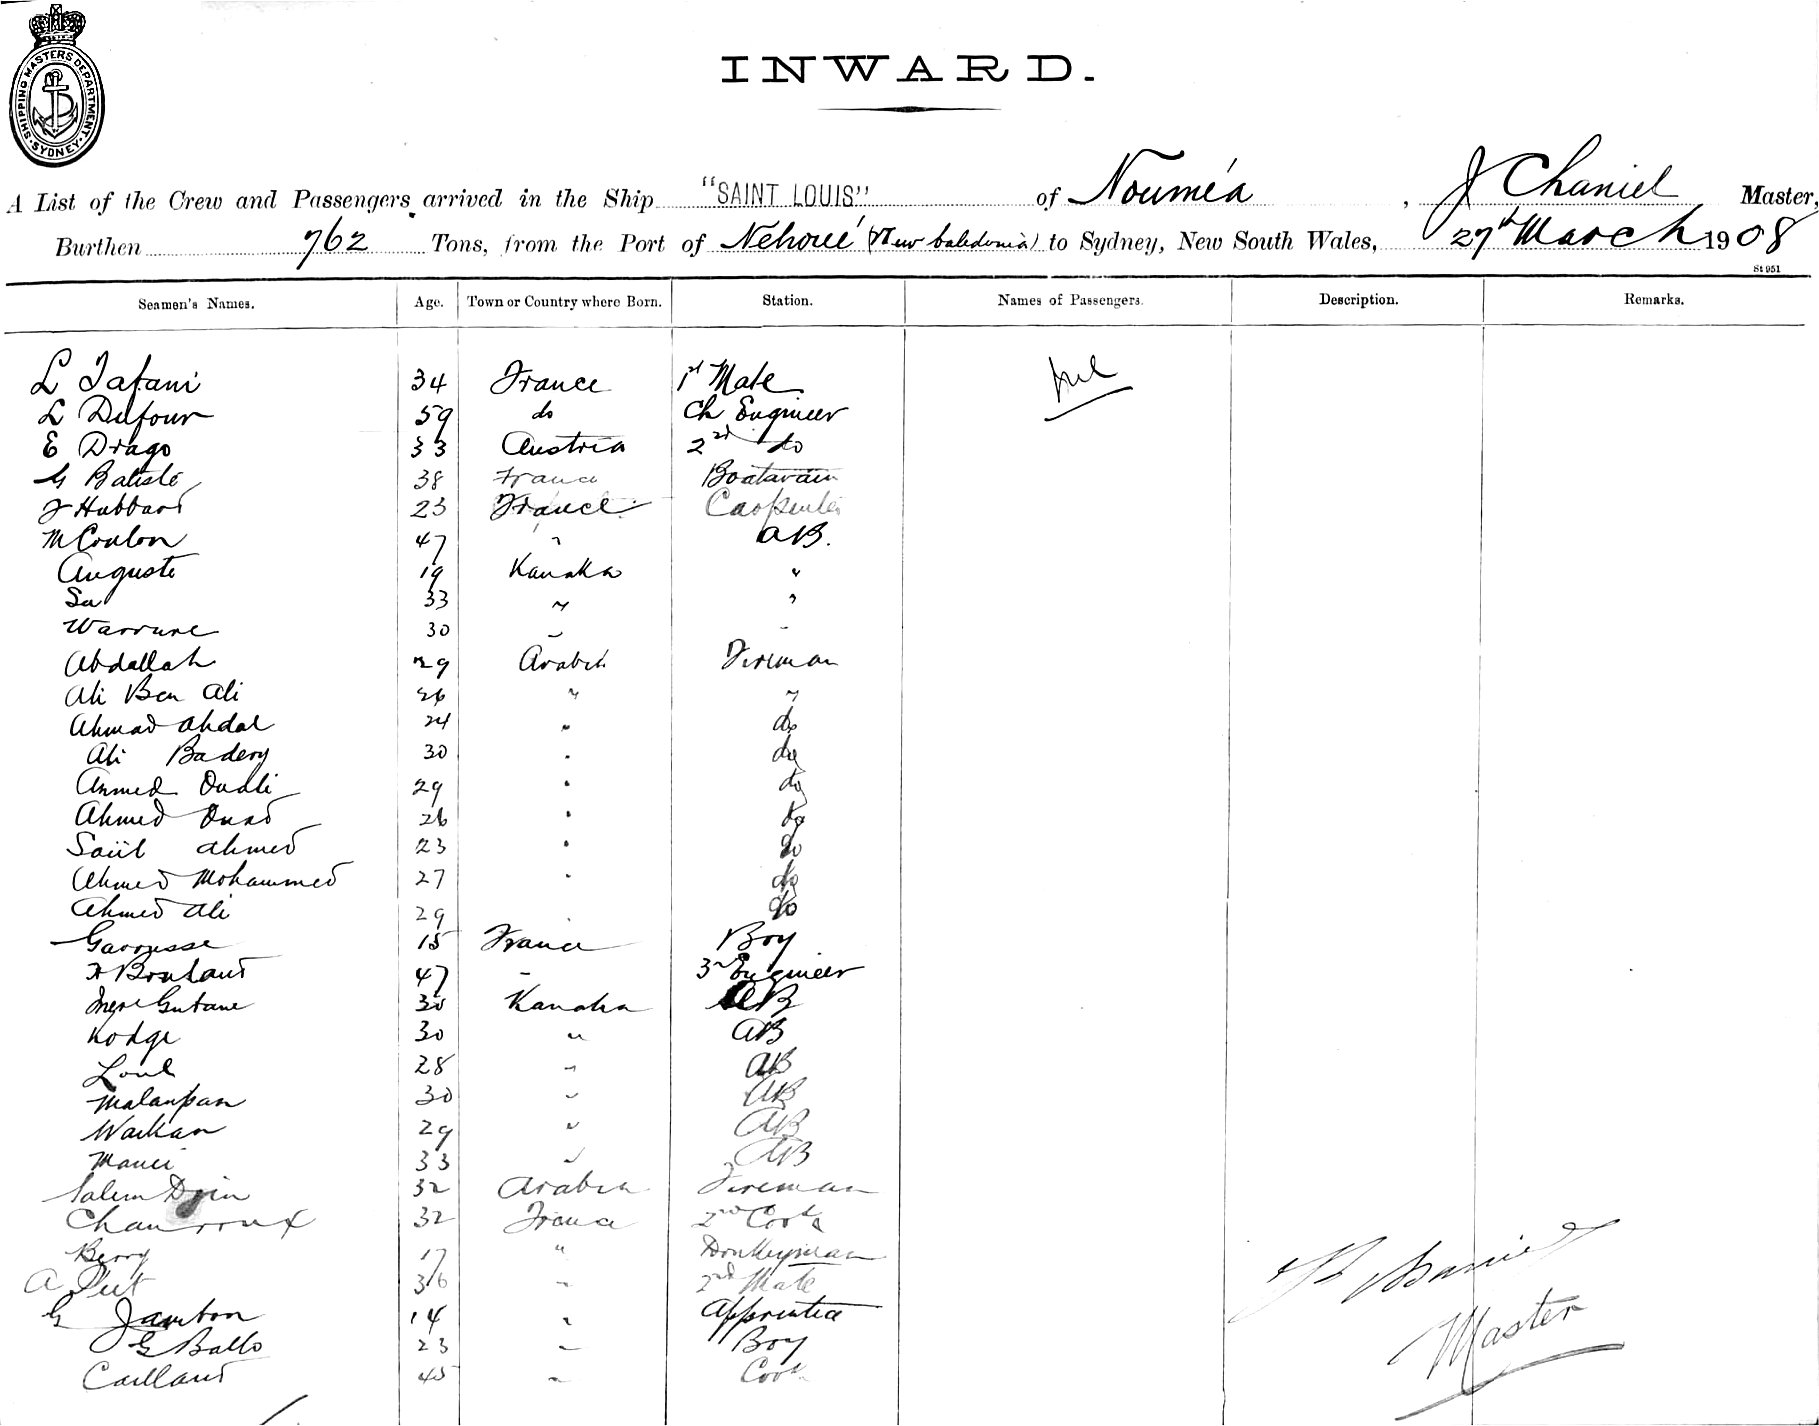 SHIPPING MASTERS DEPARTMENT SYDNEY
INWARD.
A List of the Crew and Passengers arrived in the Ship "SAINT LOUIS" of Nouméa, J Chaniel Master,
Burthen 762 Tons, from the Port of Nehoué (New Caledonia) to Sydney, New South Wales, 27th March 1908
St 951
Seamen's Names. Age. Town or Country where Born. Station. Names of Passengers. Description. Remarks.
L Tafani 34 France 1st Mate nil
L Dufour 59 do Ch Engineer
E Drago 33 Austria 2nd do
G Batiste 38 France Boatswain
J Hubbard 23 France Carpenter
M Coulon 47 " AB.
Auguste 19 Kanaka "
Su 33 " "
Warrune 30 " "
Abdallah 29 Arabia Fireman
Ali Ben Ali 26 " "
Ahmad Ahdal 24 " do
Ali Badery 30 " do
Ahmed Oudli 29 " do
Ahmed 26 " do
Saiil Ahmed 23 " do
Ahmed Mohammed 27 " do
Ahmed Ali 29 " do
Garrusse 15 France Boy
47 " 3rd Engineer
30 Kanaka AB
Hodge 30 " AB
Loul 28 " AB
Malanpan 30 " AB
Waikan 29 " AB
Mauei 33 " AB
Salem 32 Arabia Fireman
Chanroux 32 France 2nd Cook
Berry 17 " Donkeyman
A 36 " 2nd Mate
G Jambon 14 " Apprentice
G Ballo 23 " Boy
Caillaud 45 " Cook
Master